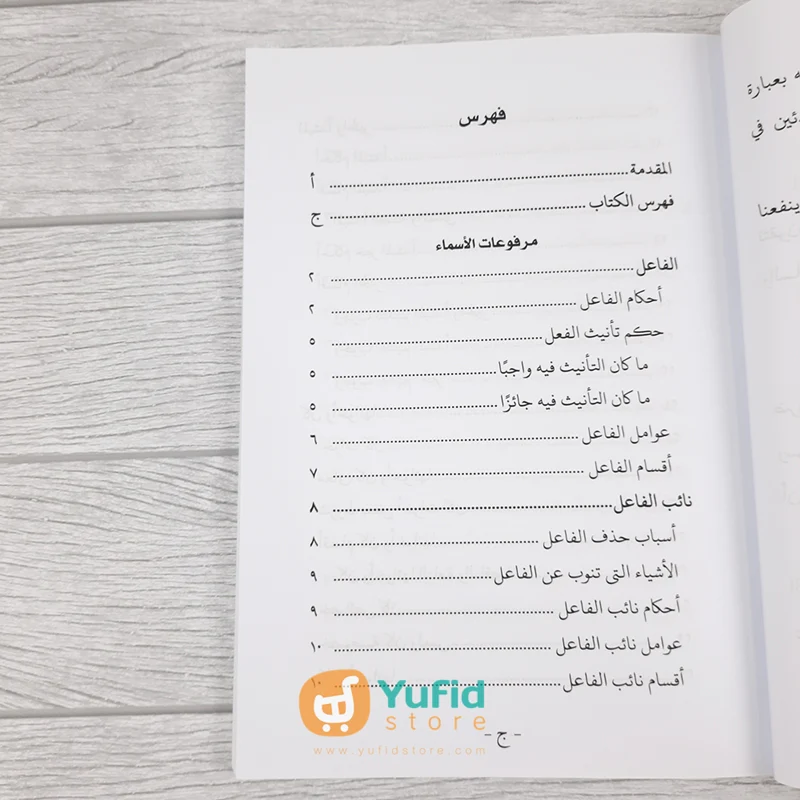 فهرس
المقدمة ........ أ
فهرس الكتاب ........ ج
مرفوعات الأسماء
الفاعل ........ ٢
أحكام الفاعل ........ ٢
حكم تأنيث الفعل ........ ٥
ما كان التأنيث فيه واجبًا ........ ٥
ما كان التأنيث فيه جائزًا ........ ٥
عوامل الفاعل ........ ٦
أقسام الفاعل ........ ٧
نائب الفاعل ........ ٨
أسباب حذف الفاعل ........ ٨
الأشياء التى تنوب عن الفاعل ........ ٩
أحكام نائب الفاعل ........ ٩
عوامل نائب الفاعل ........ ١٠
أقسام نائب الفاعل ........ ١٠
- ج -
بعبارة
في
ينفعنا
Yufid
store
www.yufidstore.com